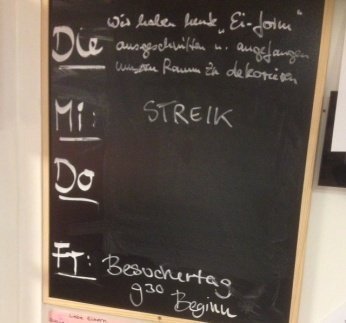 Die Wir haben heute "Ei-form"
ausgeschnitten u. angefangen
unseren Raum zu dekorieren
Mi: STREIK
Do
Fr: Besuchertag
9 30 Beginn
Liebe Eltern